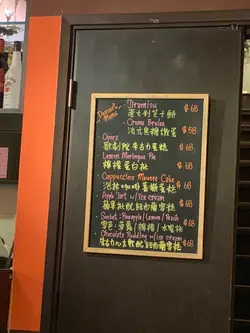 Dessert Menu
- Tiramisu $68
意大利芝士餅
- Creme Brulee $58
法式焦糖燉蛋
- Opera $68
歌劇院朱古力蛋糕
- Lemon Meringue Pie $68
檸檬蛋白批
- Cappuccino Mousse Cake $68
泡沫咖啡慕絲蛋糕
- Apple Tart w/ ice cream $68
蘋果批配雲呢拿雪糕
- Sorbet: Pineapple / Lemon / Peach $68
雪葩: 菠蘿 / 檸檬 / 水蜜桃
- Chocolate Pudding w/ ice cream $68
朱古力心太軟配雲呢拿雪糕